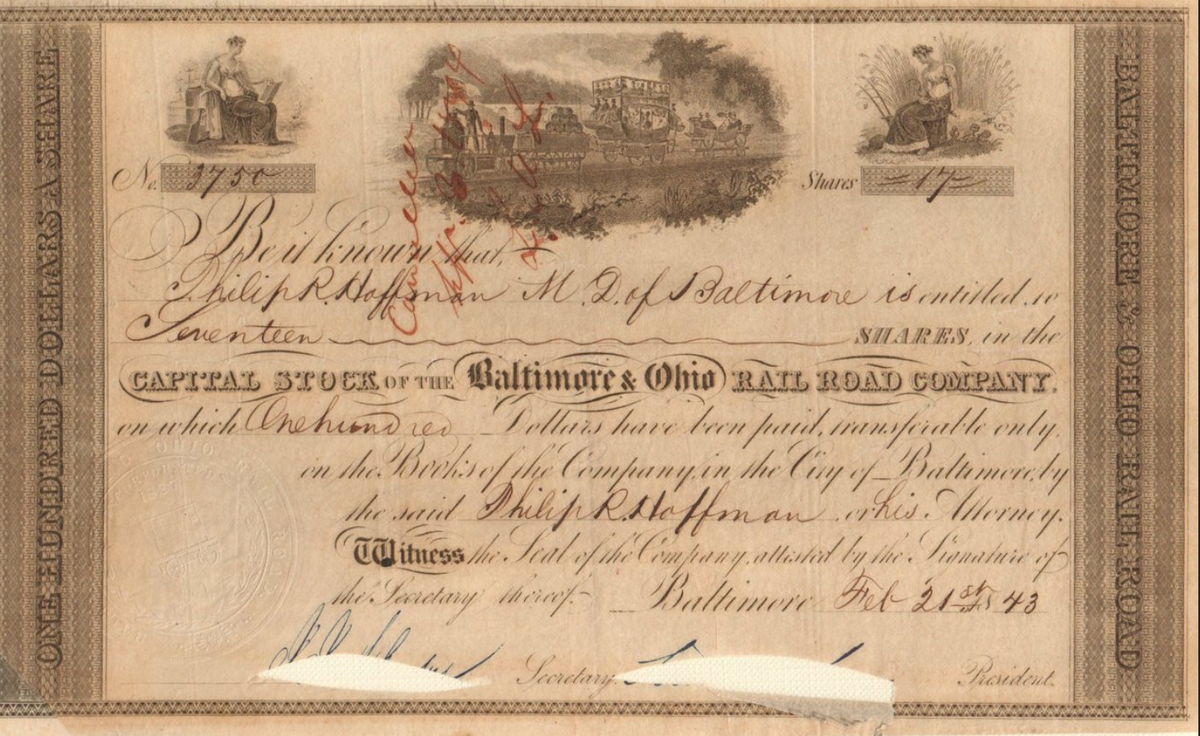 ONE HUNDRED DOLLARS A SHARE
No. 3750
Shares =17=
Be it known that,
Philip R. Hoffman M. D. of Baltimore is entitled to
Seventeen SHARES, in the
CAPITAL STOCK OF THE Baltimore & Ohio RAIL ROAD COMPANY.
on which One hundred Dollars have been paid, transferable only
on the Books of the Company, in the City of Baltimore, by
the said Philip R. Hoffman or his Attorney.
Witness the Seal of the Company, attested by the Signature of
the Secretary thereof. Baltimore Feb 21st 18 43
Secretary. President.
BALTIMORE & OHIO RAIL ROAD